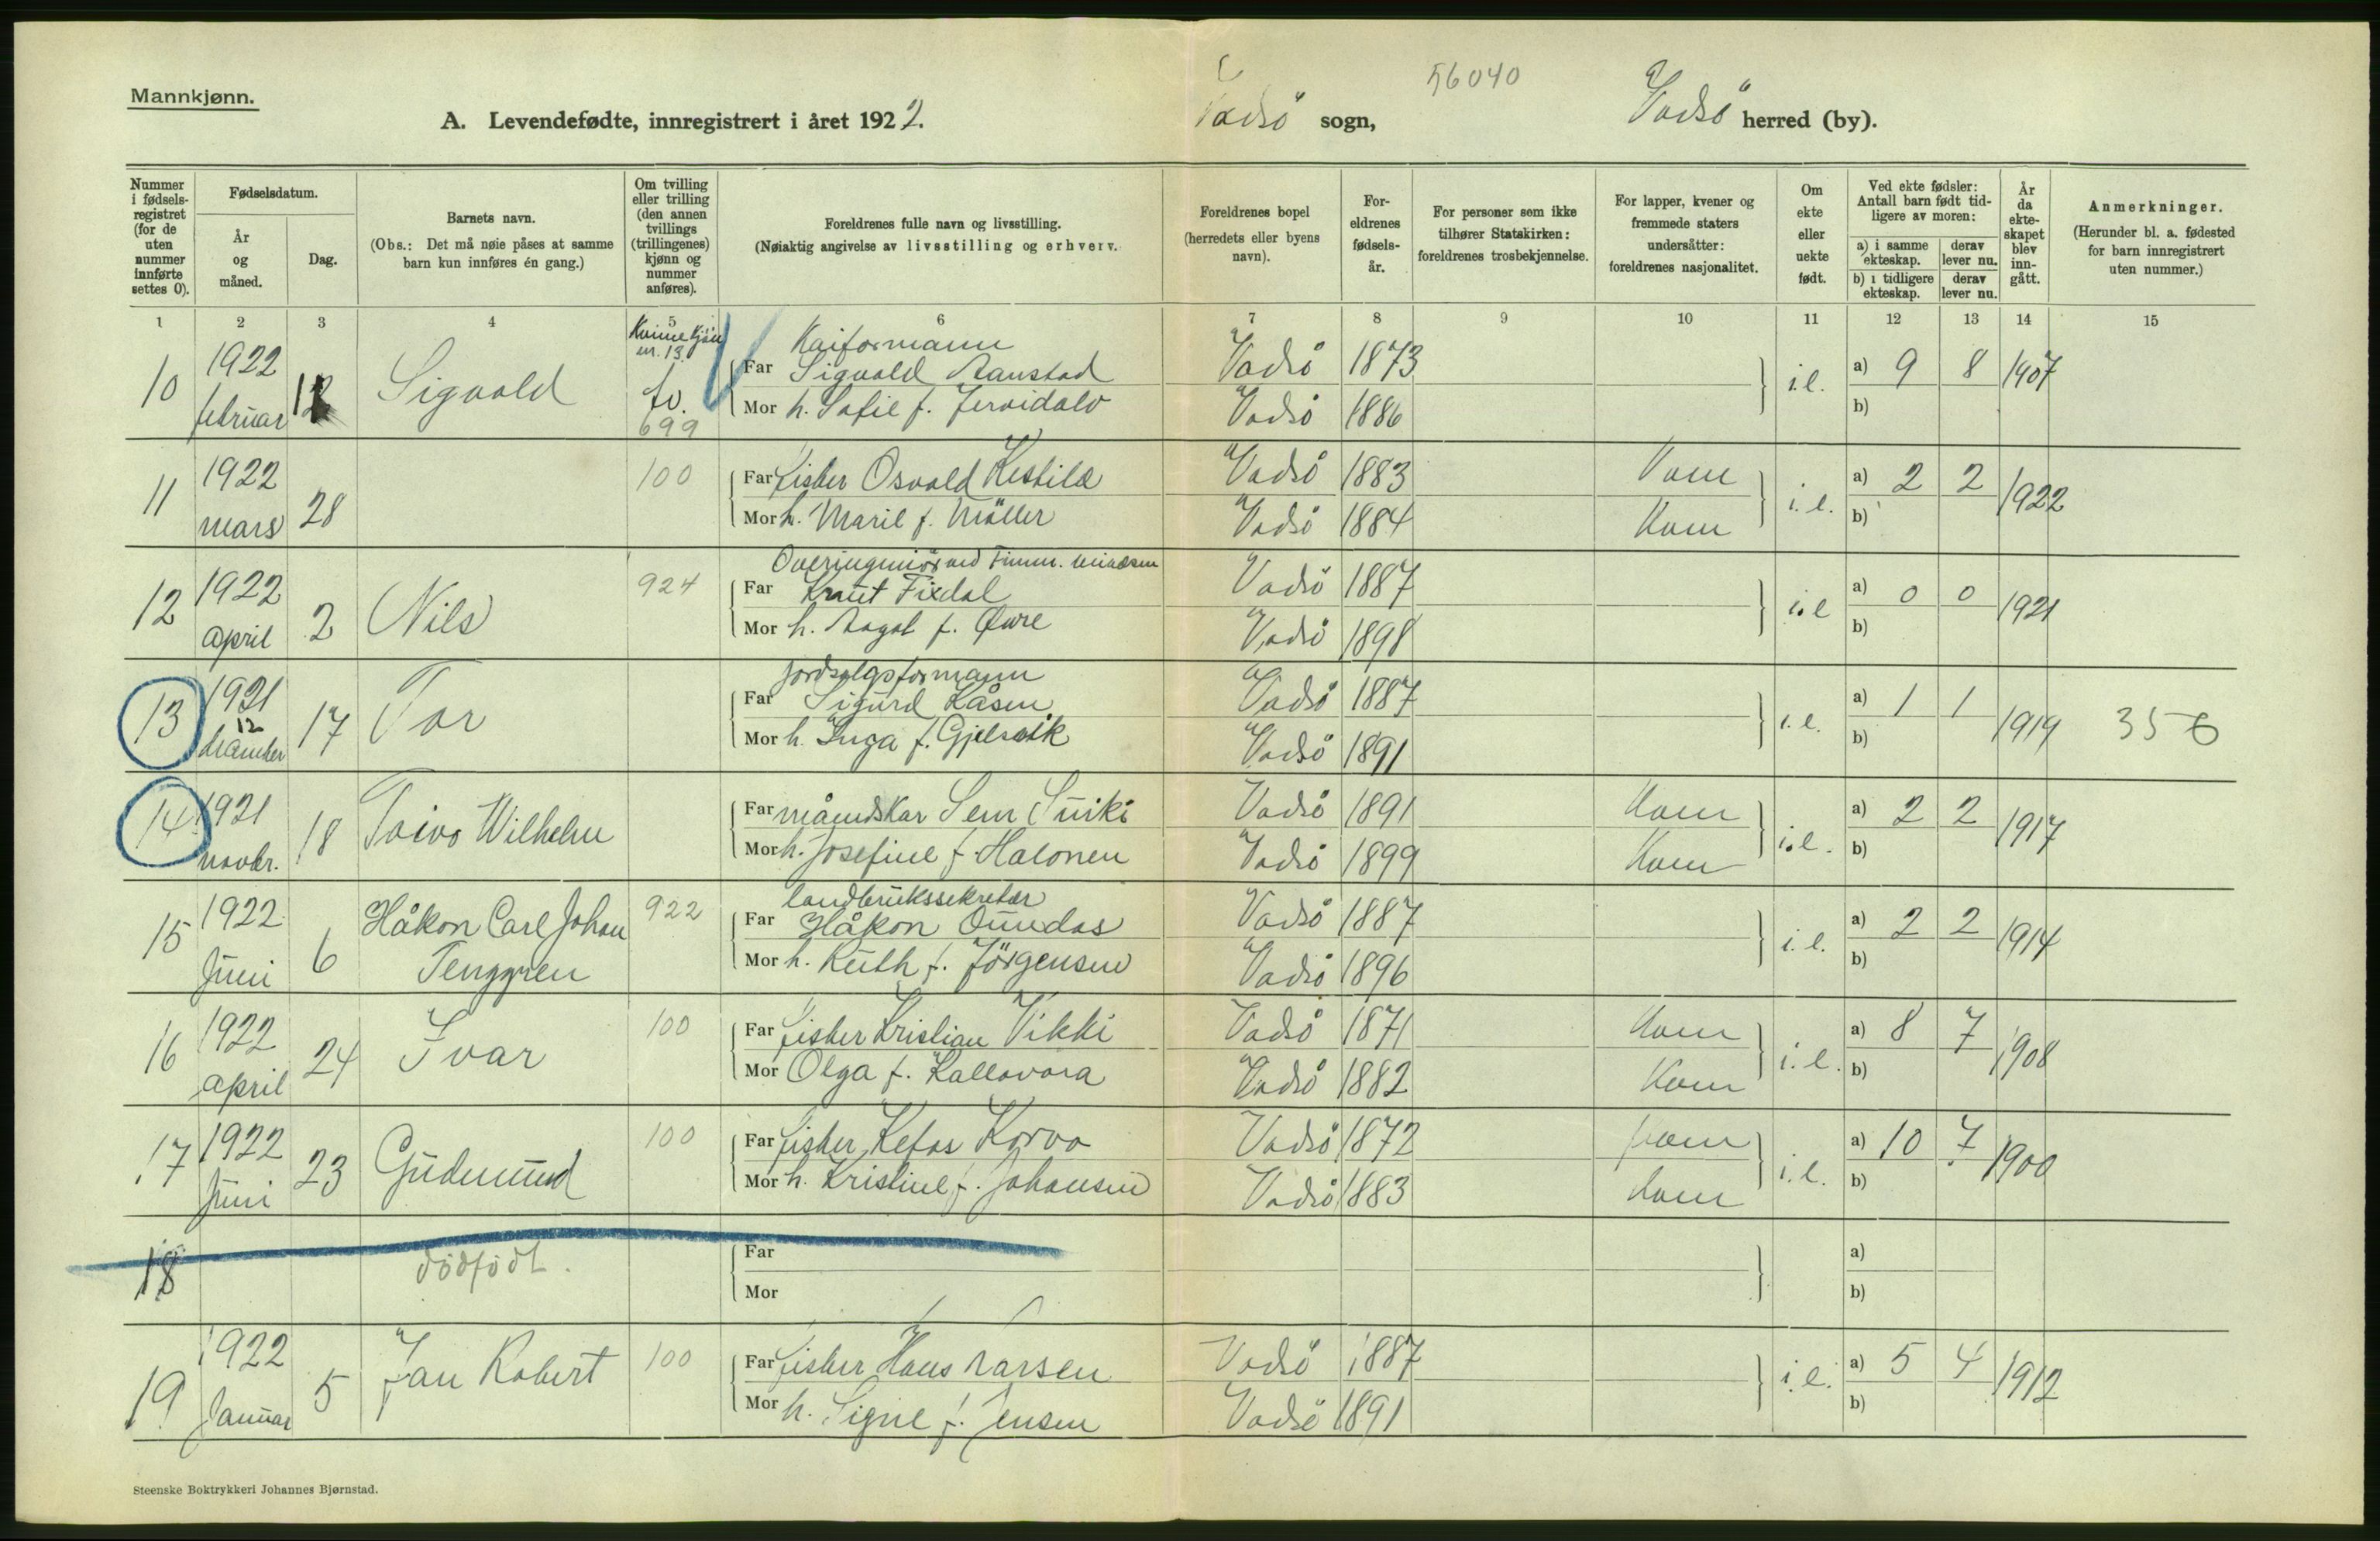 Mannkjønn.
A. Levendefødte, innregistrert i året 1922.
Vadsö sogn,
56040
Vadsö herred (by).
Nummer i fødsels-registret (for de uten nummer innførte settes 0).
Fødselsdatum.
År og måned.
Dag.
Barnets navn.
(Obs.: Det må nøie påses at samme barn kun innføres én gang.)
Om tvilling eller trilling (den annen tvillings (trillingenes) kjønn og nummer anføres).
Foreldrenes fulle navn og livsstilling.
(Nøiaktig angivelse av livsstilling og erhverv.
Foreldrenes bopel (herredets eller byens navn).
For-eldrenes fødsels-år.
For personer som ikke tilhører Statskirken: foreldrenes trosbekjennelse.
For lapper, kvener og fremmede staters undersåtter: foreldrenes nasjonalitet.
Om ekte eller uekte født.
Ved ekte fødsler: Antall barn født tid-ligere av moren:
a) i samme ekteskap.
derav lever nu.
b) i tidligere ekteskap.
derav lever nu.
År da ekte-skapet blev inn-gått.
Anmerkninger.
(Herunder bl. a. fødested for barn innregistrert uten nummer.)
1 2 3 4 5 6 7 8 9 10 11 12 13 14 15
Kvinnekjön nr. 13.
Kaiformann
10 1922 februar Sigvald tv. 699 Far Sigvald Aanstad Vadsö 1873 i.e. a) 9 8 1907
Mor h. Sofie f. Vadsö 1886 b)
11 1922 mars 28 100 Far fisker Osvald Kestila Vadsö 1883 i.e. a) 2 2 1922
Mor h. Marie f. Möller Vadsö 1884 Kven b)
Overingeniör ved
12 1922 april 2 Nils 924 Far Knut Fixdal Vadsö 1887 i.e a) 0 0 1921
Mor h. Aagot f. Øvre Vadsö 1898 b)
jordsalgsformann
13 1921 12 desember 17 Tor Far Sigurd Kåsen Vadsö 1887 i.e. a) 1 1 1919 356
Mor h. Inga f. Gjelsvik Vadsö 1891 b)
14 1921 novbr. 18 Toivo Wilhelm Far måneskar Sem Suiki Vadsö 1891 Kven i.e. a) 2 2 1917
Mor h. Josefine f. Halonen Vadsö 1899 Kven b)
landbrukssekretær
15 1922 Juni 6 Håkon Carl Johan Tenggren 922 Far Håkon Oundas Vadsö 1887 i.e. a) 2 2 1914
Mor h. Ruth f. Jörgensen Vadsö 1896 b)
16 1922 april 24 Ivar 100 Far fisker Kristian Vikki Vadsö 1871 Kven i.e. a) 8 7 1908
Mor Olga f. Kallavara Vadsö 1882 Kven b)
17 1922 Juni 23 Gudmund 100 Far fisker Kefas Korva Vadsö 1872 i.e. a) 10 7 1900
Mor h. Kristine f. Johansen Vadsö 1883 Kven b)
18 dödfödt. Far a)
Mor b)
19 1922 Januar 5 Jan Robert 100 Far fisker Hans Larsen Vadsö 1887 i.e. a) 5 4 1912
Mor h. Signe f. Jensen Vadsö 1891 b)
Steenske Boktrykkeri Johannes Bjørnstad.